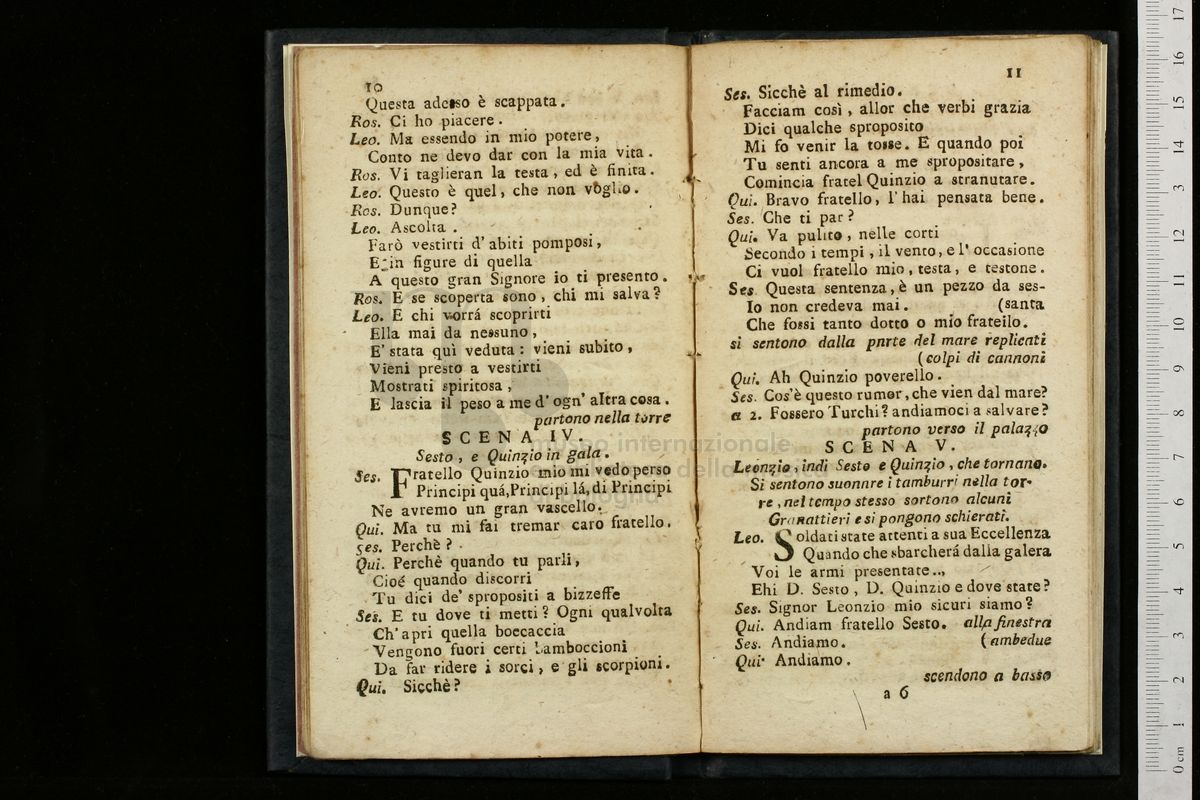 10
Questa adesso è scappata.
Ros. Ci ho piacere.
Leo. Ma essendo in mio potere,
Conto ne devo dar con la mia vita.
Ros. Vi taglieran la testa, ed è finita.
Leo. Questo è quel, che non voglio.
Ros. Dunque?
Leo. Ascolta.
Farò vestirti d'abiti pomposi,
E in figure di quella
A questo gran Signore io ti presento.
Ros. E se scoperta sono, chi mi salva?
Leo. E chi vorrá scoprirti
Ella mai da nessuno,
E' stata quì veduta: vieni subito,
Vieni presto a vestirti
Mostrati spiritosa,
E lascia il peso a me d'ogn' altra cosa.
partono nella torre
SCENA IV.
Sesto, e Quinzio in gala.
Ses. Fratello Quinzio mio mi vedo perso
Principi quá, Principi lá, di Principi
Ne avremo un gran vascello.
Qui. Ma tu mi fai tremar caro fratello.
Ses. Perchè?
Qui. Perchè quando tu parli,
Cioé quando discorri
Tu dici de' spropositi a bizzeffe
Ses. E tu dove ti metti? Ogni qualvolta
Ch'apri quella boccaccia
Vengono fuori certi bamboccioni
Da far ridere i sorci, e gli scorpioni.
Qui. Sicchè?
11
Ses. Sicchè al rimedio.
Facciam così, allor che verbi grazia
Dici qualche sproposito
Mi fo venir la tosse. E quando poi
Tu senti ancora a me spropositare,
Comincia fratel Quinzio a stranutare.
Qui. Bravo fratello, l'hai pensata bene.
Ses. Che ti par?
Qui. Va pulito, nelle corti
Secondo i tempi, il vento, e l'occasione
Ci vuol fratello mio, testa, e testone.
Ses. Questa sentenza, è un pezzo da ses-
Io non credeva mai. (santa
Che fossi tanto dotto o mio fratello.
si sentono dalla pnrte del mare replicati
(colpi di cannoni
Qui. Ah Quinzio poverello.
Ses. Cos'è questo rumor, che vien dal mare?
a 2. Fossero Turchi? andiamoci a salvare?
partono verso il palazzo
SCENA V.
Leonzio, indi Sesto e Quinzio, che tornano.
Si sentono suonnre i tamburri nella tor-
re, nel tempo stesso sortono alcuni
Granattieri e si pongono schierati.
Leo. Soldati state attenti a sua Eccellenza
Quando che sbarcherá dalla galera
Voi le armi presentate..,
Ehi D. Sesto, D. Quinzio e dove state?
Ses. Signor Leonzio mio sicuri siamo?
Qui. Andiam fratello Sesto. alla finestra
Ses. Andiamo. (ambedue
Qui. Andiamo.
scendono a basso
a 6
museo internazionale
e biblioteca della musica
di bologna
0 cm 1 2 3 4 5 6 7 8 9 10 11 12 13 14 15 16 17